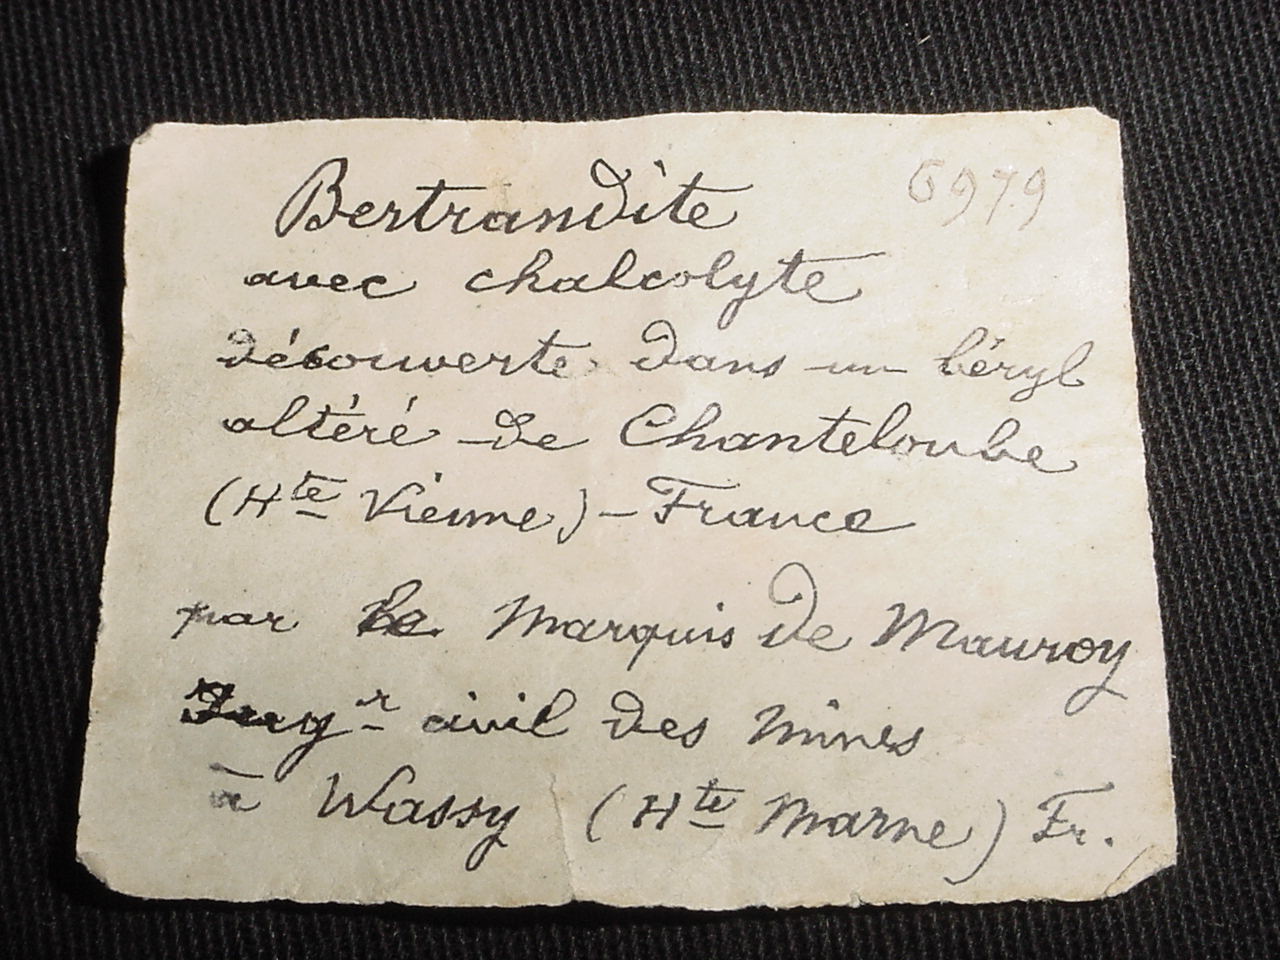 Bertrandite
6979
avec chalcolyte
découverte dans un béryl
altéré de Chanteloube
(Hte Vienne) - France
par le Marquis de Mauroy
Ingr civil des Mines
à Wassy (Hte Marne) Fr.